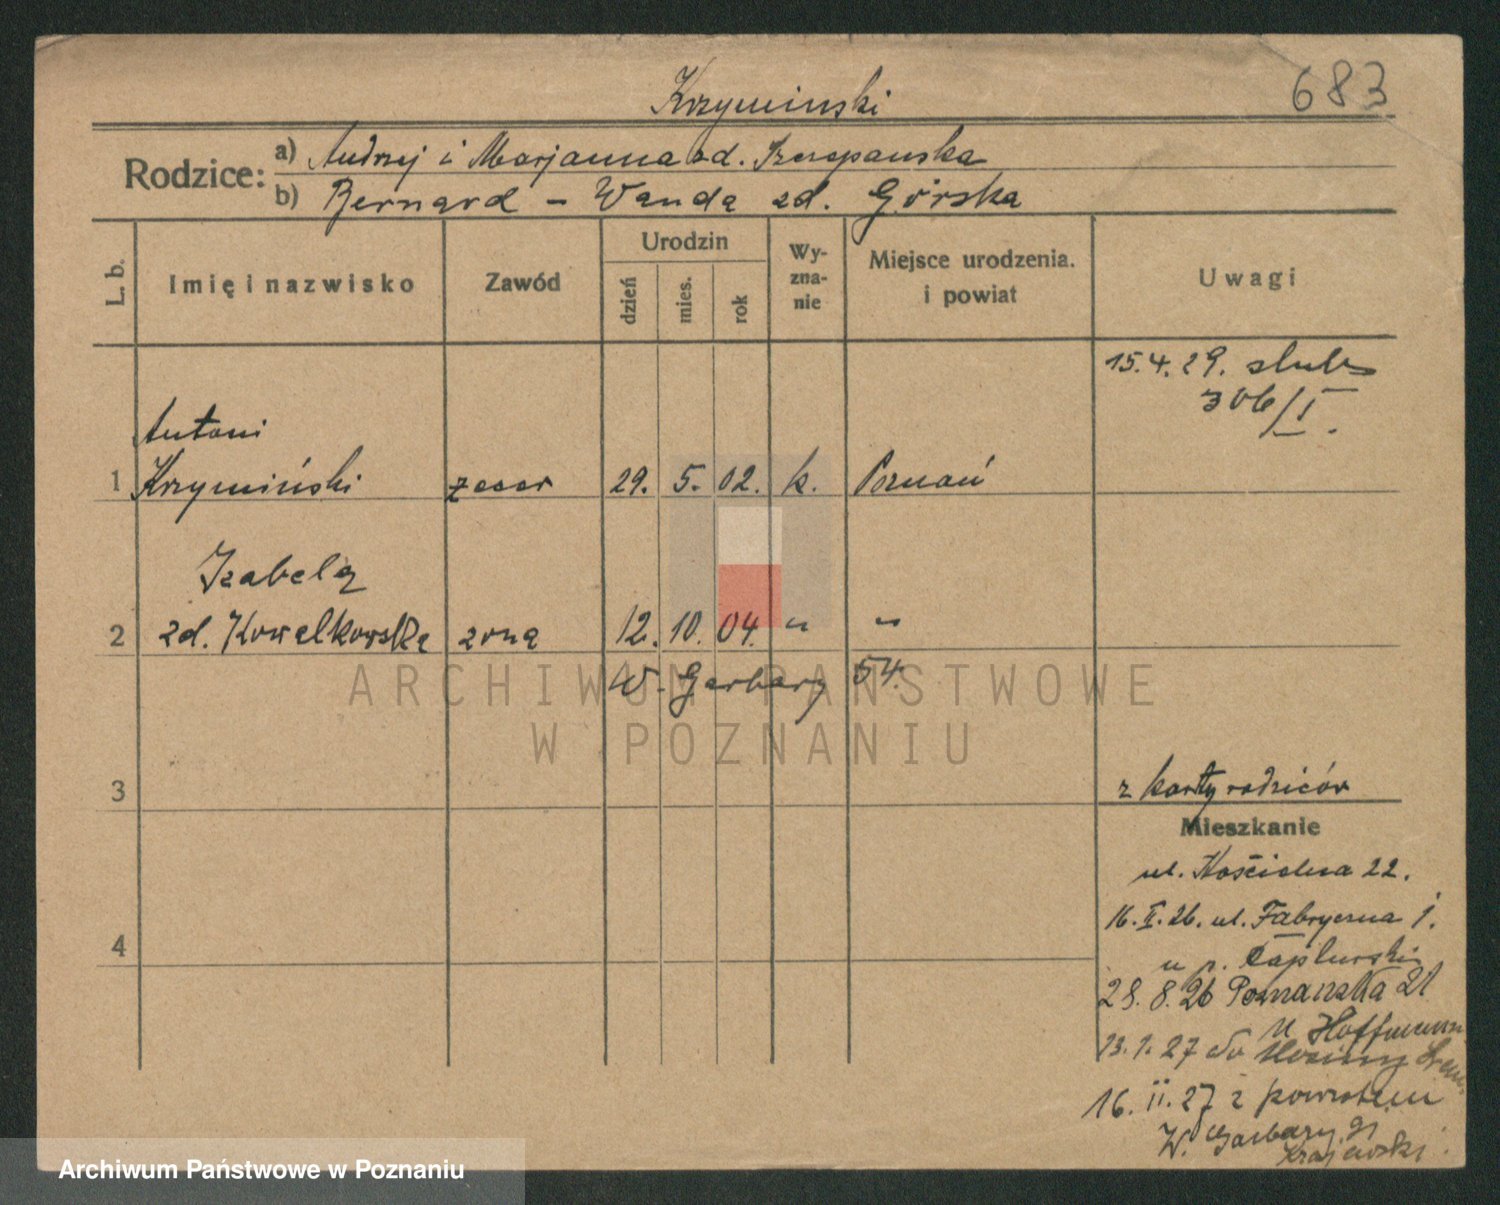 683
Krzyminski
Rodzice: a) Andrzej i Marjanna zd. Szczepanska
b) Bernard - Wanda zd. Górska
L. b. Imię i nazwisko Zawód Urodzin dzień mies. rok Wyznanie Miejsce urodzenia. i powiat Uwagi
15.4.29. slub
306/I.
Antoni
1 Krzymiński zecer 29. 5. 02. k. Poznań
Izabela
2 zd. Kowalkowska zona 12. 10. 04. " "
W. Garbary 54.
3
z karty rodziców
Mieszkanie
ul. Kościelna 22.
16.II.26. ul. Fabryczna 1.
4
u p.
28.8.26 Poznanska 21
u Hoffmann
13.1.27 do
16.II.27 z powrotem
W. Garbary 91
Krajewski.
ARCHIWUM PAŃSTWOWE
W POZNANIU
Archiwum Państwowe w Poznaniu